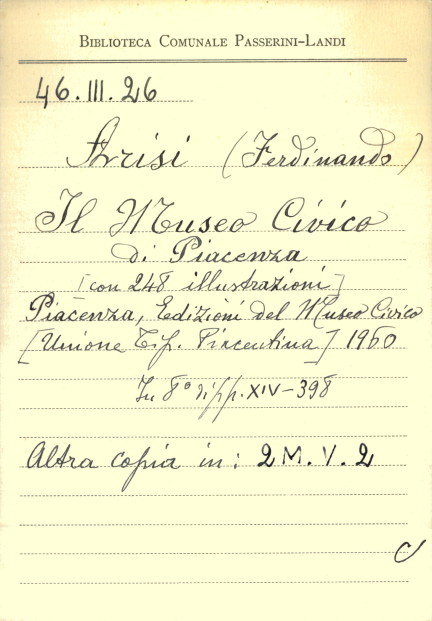 BIBLIOTECA COMUNALE PASSERINI-LANDI
46.III.26
Arisi (Ferdinando)
Il Museo Civico
di Piacenza
[con 248 illustrazioni]
Piacenza, Edizioni del Museo Civico
[Unione Tip. Piacentina] 1960
In 8° di pp. XIV-398
Altra copia in: 2 M. V. 2